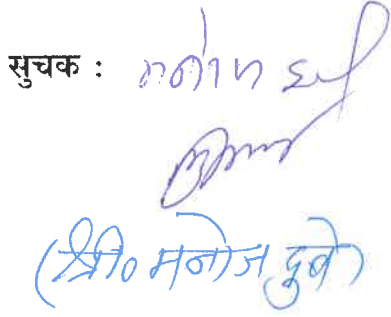 सुचक : मनोज दुबे
(श्री० मनोज दुबे)